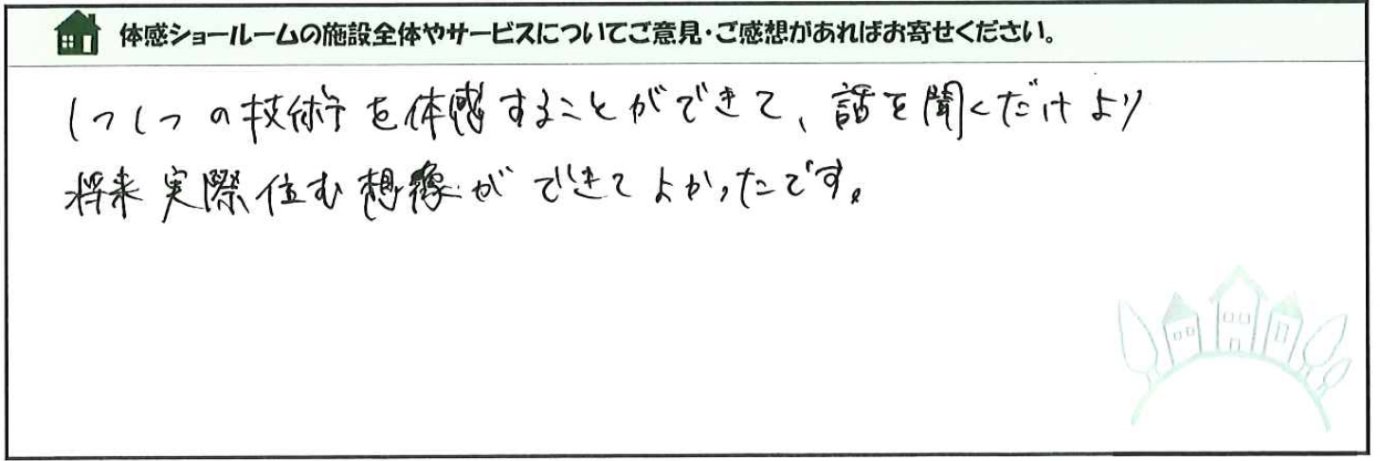 体感ショールームの施設全体やサービスについてご意見・ご感想があればお寄せください。
1つ1つの技術を体感することができて、話を聞くだけより
将来実際住む想像ができてよかったです。